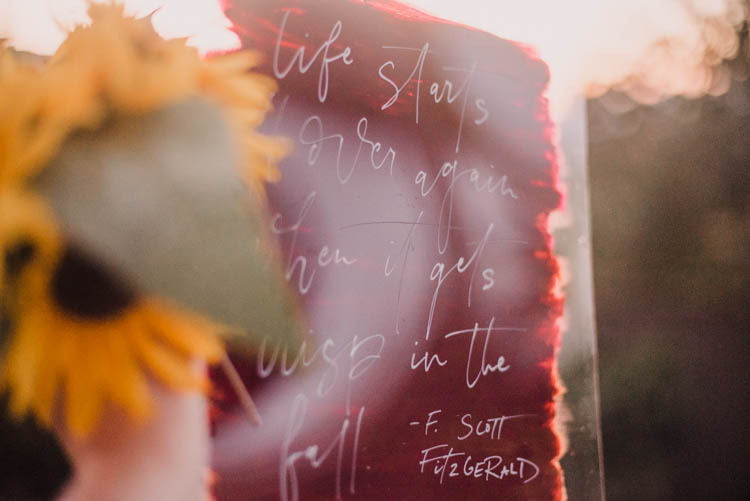 life starts
over again
when it gets
crisp in the
fall
-F. SCOTT
FITZGERALD